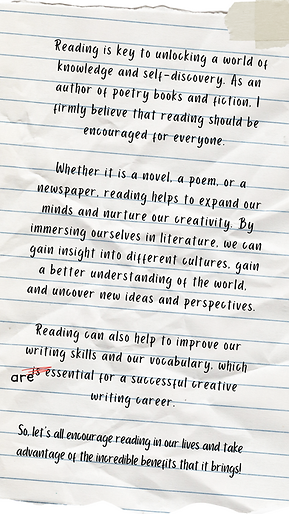 Reading is key to unlocking a world of
knowledge and self-discovery. As an
author of poetry books and fiction, I
firmly believe that reading should be
encouraged for everyone.
Whether it is a novel, a poem, or a
newspaper, reading helps to expand our
minds and nurture our creativity. By
immersing ourselves in literature, we can
gain insight into different cultures, gain
a better understanding of the world,
and uncover new ideas and perspectives.
Reading can also help to improve our
writing skills and our vocabulary, which
are is essential for a successful creative
writing career.
So, let's all encourage reading in our lives and take
advantage of the incredible benefits that it brings!